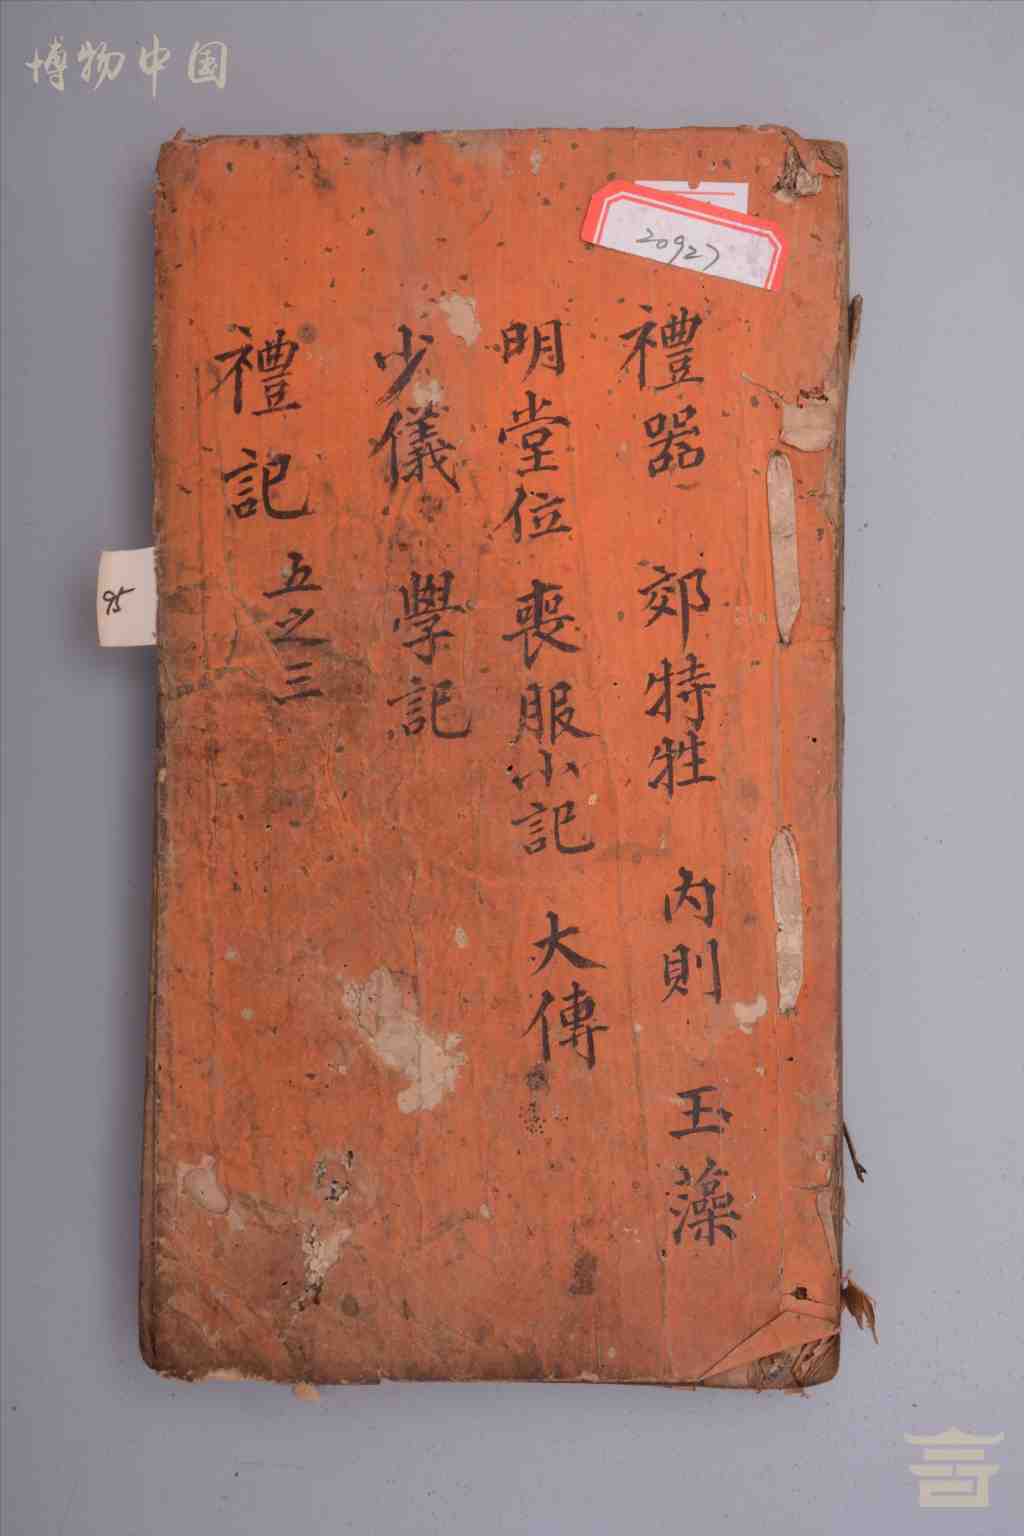 博物中国
20927
禮器 郊特牲 內則 玉藻
明堂位 喪服小記 大傳
少儀 學記
禮記 五之三
95